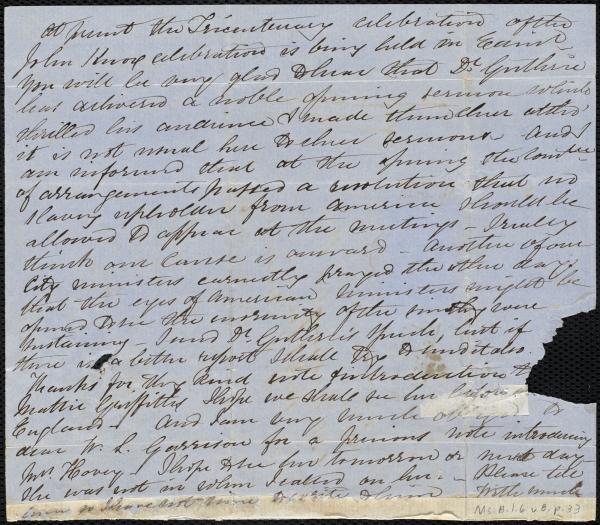 at present the Tricentenary celebration of the
John Knox celebration is being held in Edinr
you will be very glad to hear that Dr Guthrie
has delivered a noble opening sermon which
thrilled his audience & made them cheer altho'
it is not usual here to cheer sermons and I
am informed that at the opening the Comtee
of arrangements passed a resolution that no
slavery upholder from america should be
allowed to appear at the meetings - I really
think our cause is onward - Another of our
City ministers earnestly prayed the other day
that the eyes of American Ministers might be
opened to see the enormity of the sin they were
sustaining I send Dr Guthrie's speech, but if
there is a better report I shall try to send it also.
Thanks for thy kind note of introduction to
Mattie Griffiths I hope we shall see her before
England - And I am very much obliged to
dear W. L. Garrison for a previous note introducing
Mrs Hovey - I hope to see her tomorrow or next day
She was not in when I called on her - Please tell
him so I have not time to write to him
With much
Ms. B. 1. 6 v. 8, p. 33